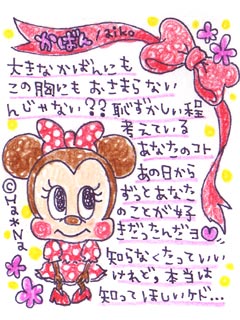 かばん／aiko
大きなかばんにも
この胸にもおさまらない
んじゃない??恥ずかしい程
考えている
あなたのコト
あの日から
ずっとあなた
のことが好
きだったんだヨ
知らなくたっていい
けれど、本当は
知ってほしいケド…
©HaNa